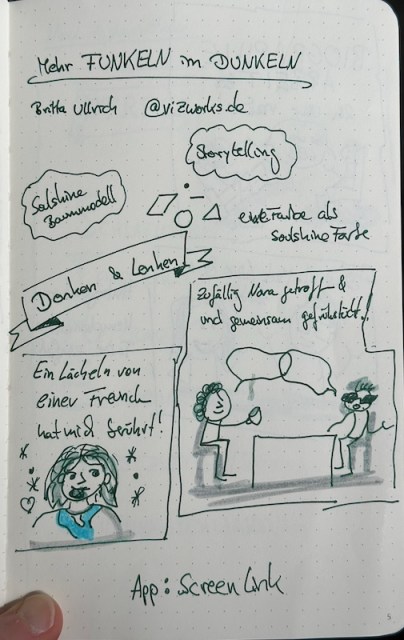 Mehr FUNKELN im DUNKELN
Britta Ullrich @vizworks.de
Storytelling
Solshine
Baummodell
eine Farbe als
Soulshine Farbe
Danken & Lenken
Zufällig Nora getroff &
und gemeinsam gefrühstückt!
Ein Lächeln von
einer Freundin
hat mich berührt!
App: Screen Link
5